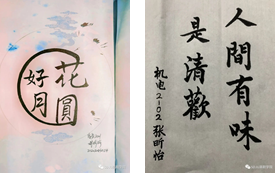 花圓
好月
人間有味
是清歡
机电2102 张昕怡